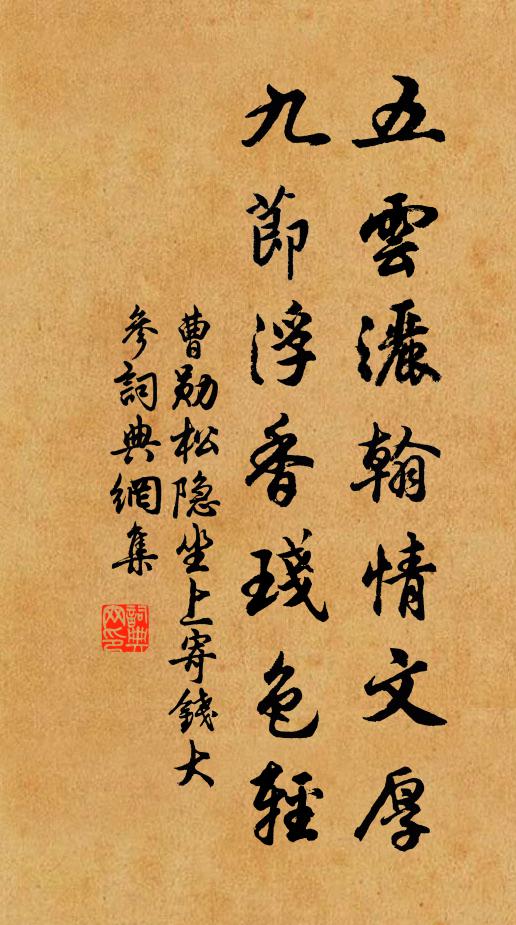 五雲灑翰情文厚
九節浮香琖色輕
曹勛松隱坐上寄錢大
參詞典網集
詞典網印